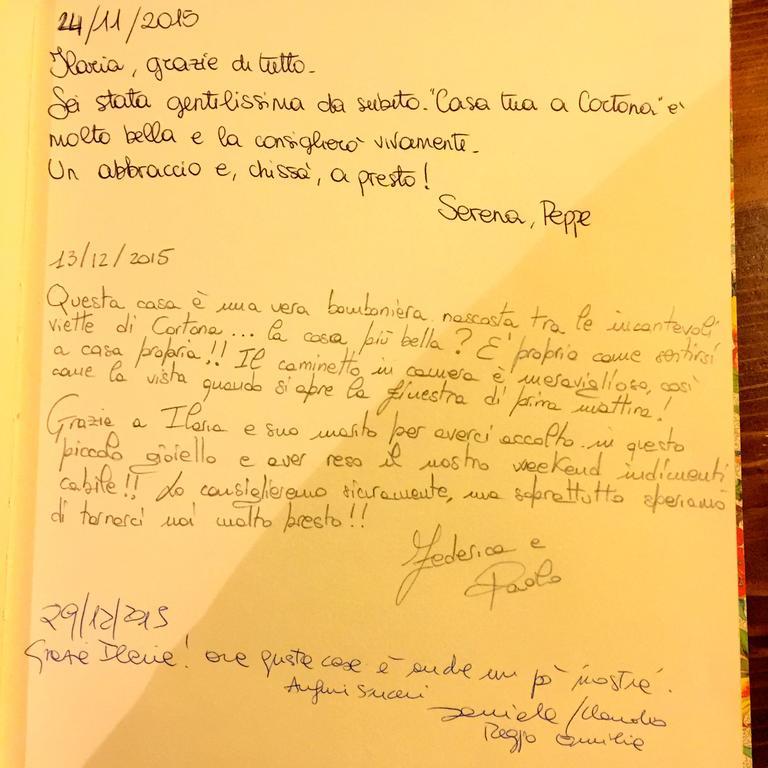 24/11/2015
Ilaria, grazie di tutto.
Sei stata gentilissima da subito. "Casa tua a Cortona" è
molto bella e la consiglierò vivamente.
Un abbraccio e, chissà, a presto!
Serena, Peppe
13/12/2015
Questa casa è una vera bomboniera nascosta tra le incantevoli
viette di Cortona... la cosa più bella? E' proprio come sentirsi
a casa propria!! Il caminetto in camera è meraviglioso, così
come la vista quando si apre la finestra di prima mattina!
Grazie a Ilaria e suo marito per averci accolto in questo
piccolo gioiello e aver reso il nostro weekend indimenti
cabile!! Lo consiglieremo sicuramente, ma soprattutto speriamo
di tornarci noi molto presto!!
Federica e
Paolo
29/12/2015
Grazie Ilaria! ora questa casa è anche un pò "nostra".
Auguri Sinceri
Daniela/Claudio
Reggio Emilia